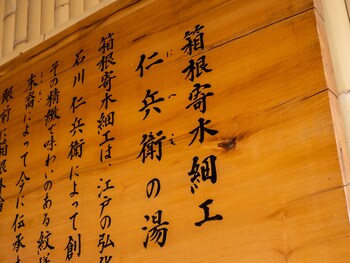 箱根寄木細工
仁兵衛の湯
にへえ
箱根寄木細工は、江戸の弘化
石川 仁兵衛によって創
その精緻で味わいのある紋様
木寄によって今に伝承